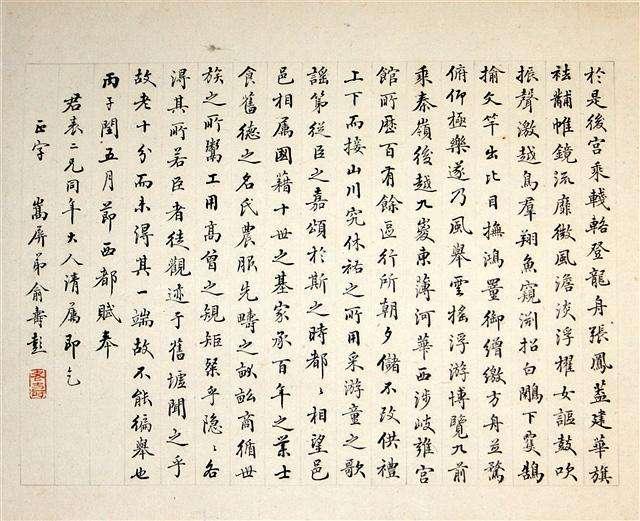 於是後宮乘輚輅登龍舟張鳳蓋建華旗
祛黼帷鏡流靡微風澹淡浮擢女謳鼓吹
振聲激越鳥羣翔魚窺淵招白鷳下雙鵠
揄文竿出比目撫鴻罿御矰繳方舟並騖
俯仰極樂遂乃風舉雲搖浮游博覽九前
乘秦嶺後越九嵏東薄河華西涉岐雍宮
館所歷百有餘區行所朝夕儲不改供禮
上下而接山川究休祐之所用采游童之歌
謠第從臣之嘉頌於斯之時都〻相望邑
邑相属國籍十世之基家承百年之業士
食舊德之名氏農服先疇之畝商循世
族之所鬻工用高曾之規矩粲乎隱〻各
得其所若臣者徒觀迹于舊墟聞之乎
故老十分而未得其一端故不能徧舉也
丙子閏五月節西都賦奉
君表二兄同年大人清属即乞
正字 嵩屏弟俞壽彭